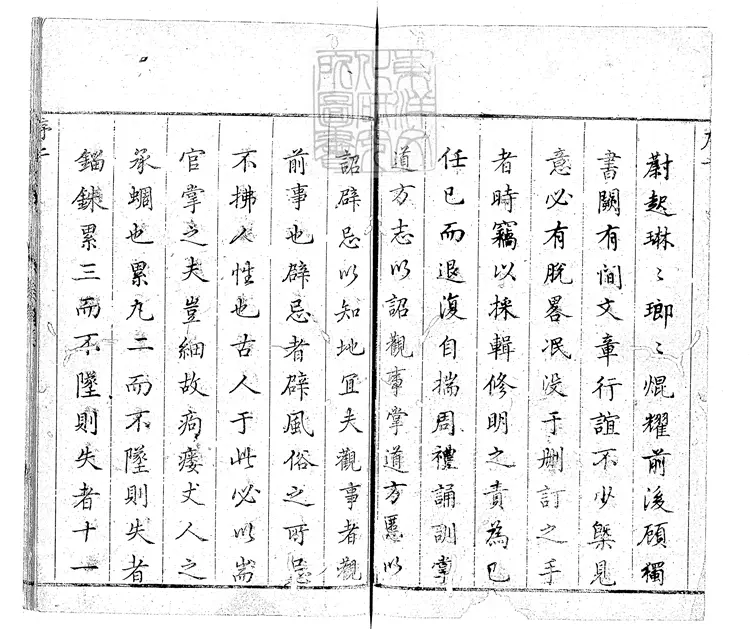 蔚起琳〻瑯〻焜耀前後顧獨
書闕有間文章行誼不少槩見
意必有脫畧泯没于刪訂之手
者時竊以採輯修明之責為己
任已而退復自揣周禮誦訓掌
道方志以詔觀事掌道方慝以
詔辟忌以知地宜夫觀事者觀
前事也辟忌者辟風俗之所忌
不拂人性也古人于此必以耑
官掌之夫豈細故痀瘻丈人之
承蜩也累九二而不墜則失者
錙銖累三而不墜則失者十一
序二
東洋文化研究所圖書